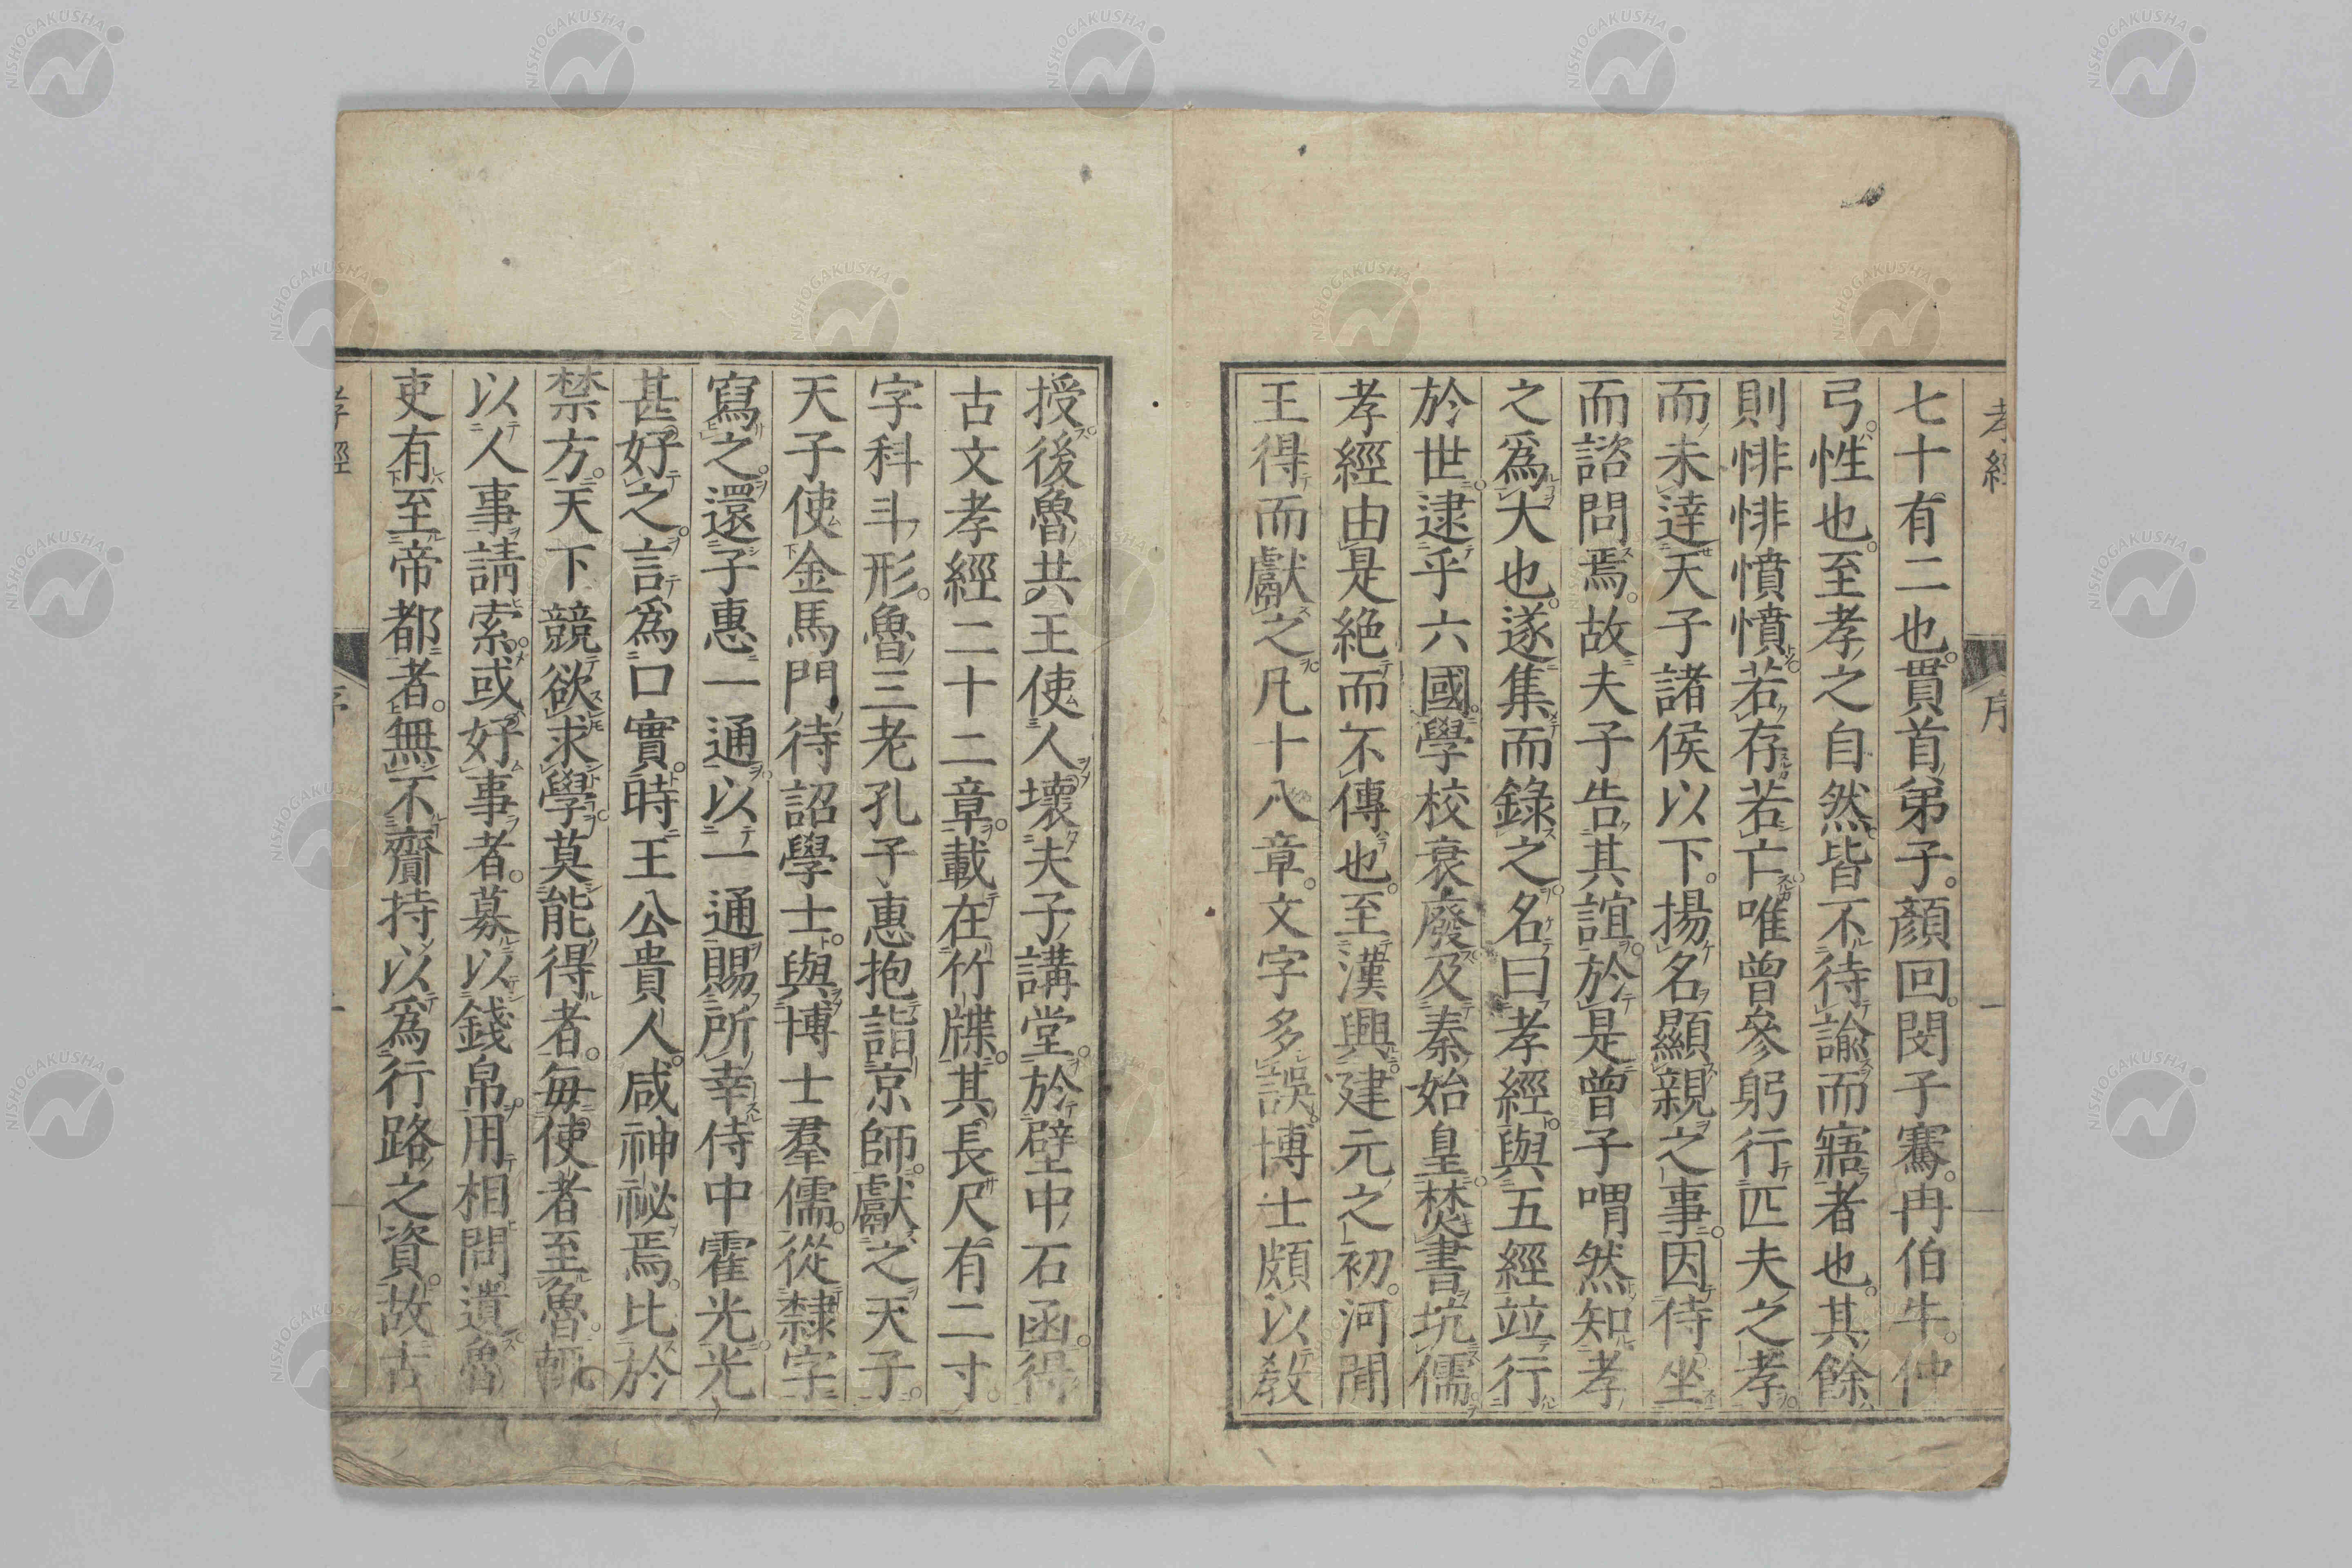 七十有二也貫首弟子顏回閔子騫冉伯牛仲
弓性也至孝之自然皆不待諭而寤者也其餘
則悱悱憤憤若存若亡唯曾參躬行匹夫之孝
而未達天子諸侯以下揚名顯親之事因侍坐
而諮問焉故夫子告其誼於是曾子喟然知孝
之爲大也遂集而錄之名曰孝經與五經竝行
於世逮乎六國學校衰廢及秦始皇焚書坑儒
孝經由是絕而不傳也至漢興建元之初河間
王得而獻之凡十八章文字多誤博士頗以敎
授後魯共王使人壞夫子講堂於壁中石函得
古文孝經二十二章載在竹牒其長尺有二寸
字科斗形魯三老孔子惠抱詣京師獻之天子
天子使金馬門待詔學士與博士羣儒從隸字
寫之還子惠一通以一通賜所幸侍中霍光光
甚好之言爲口實時王公貴人咸神祕焉比於
禁方天下競欲求學莫能得者每使者至魯輒
以人事請索或好事者募以錢帛用相問遺魯
吏有至帝都者無不齎持以爲行路之資故古
孝經